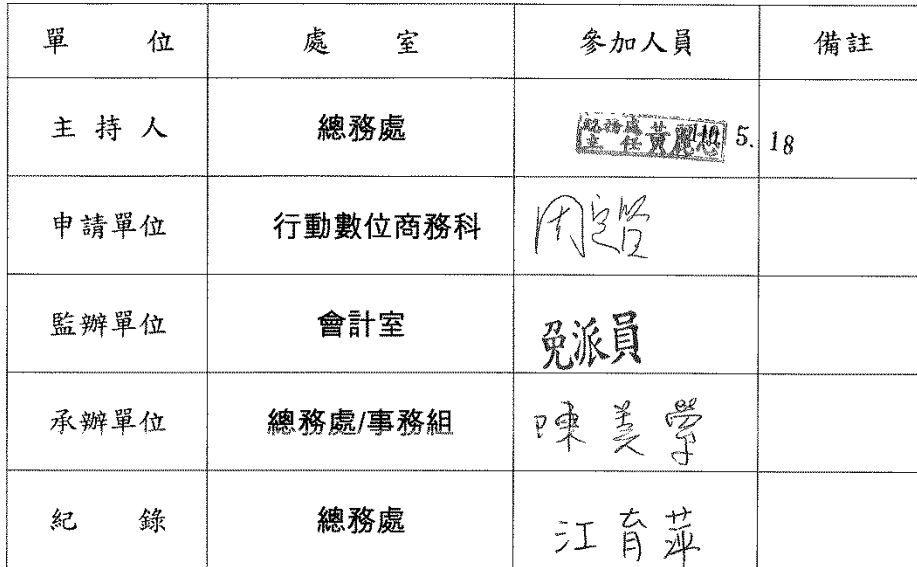 單 位 處 室 參加人員 備註
主 持 人 總務處 總務處 主 任 黃麗 110. 5. 18
申請單位 行動數位商務科 周
監辦單位 會計室 免派員
承辦單位 總務處/事務組 陳美學
紀 錄 總務處 江育萍